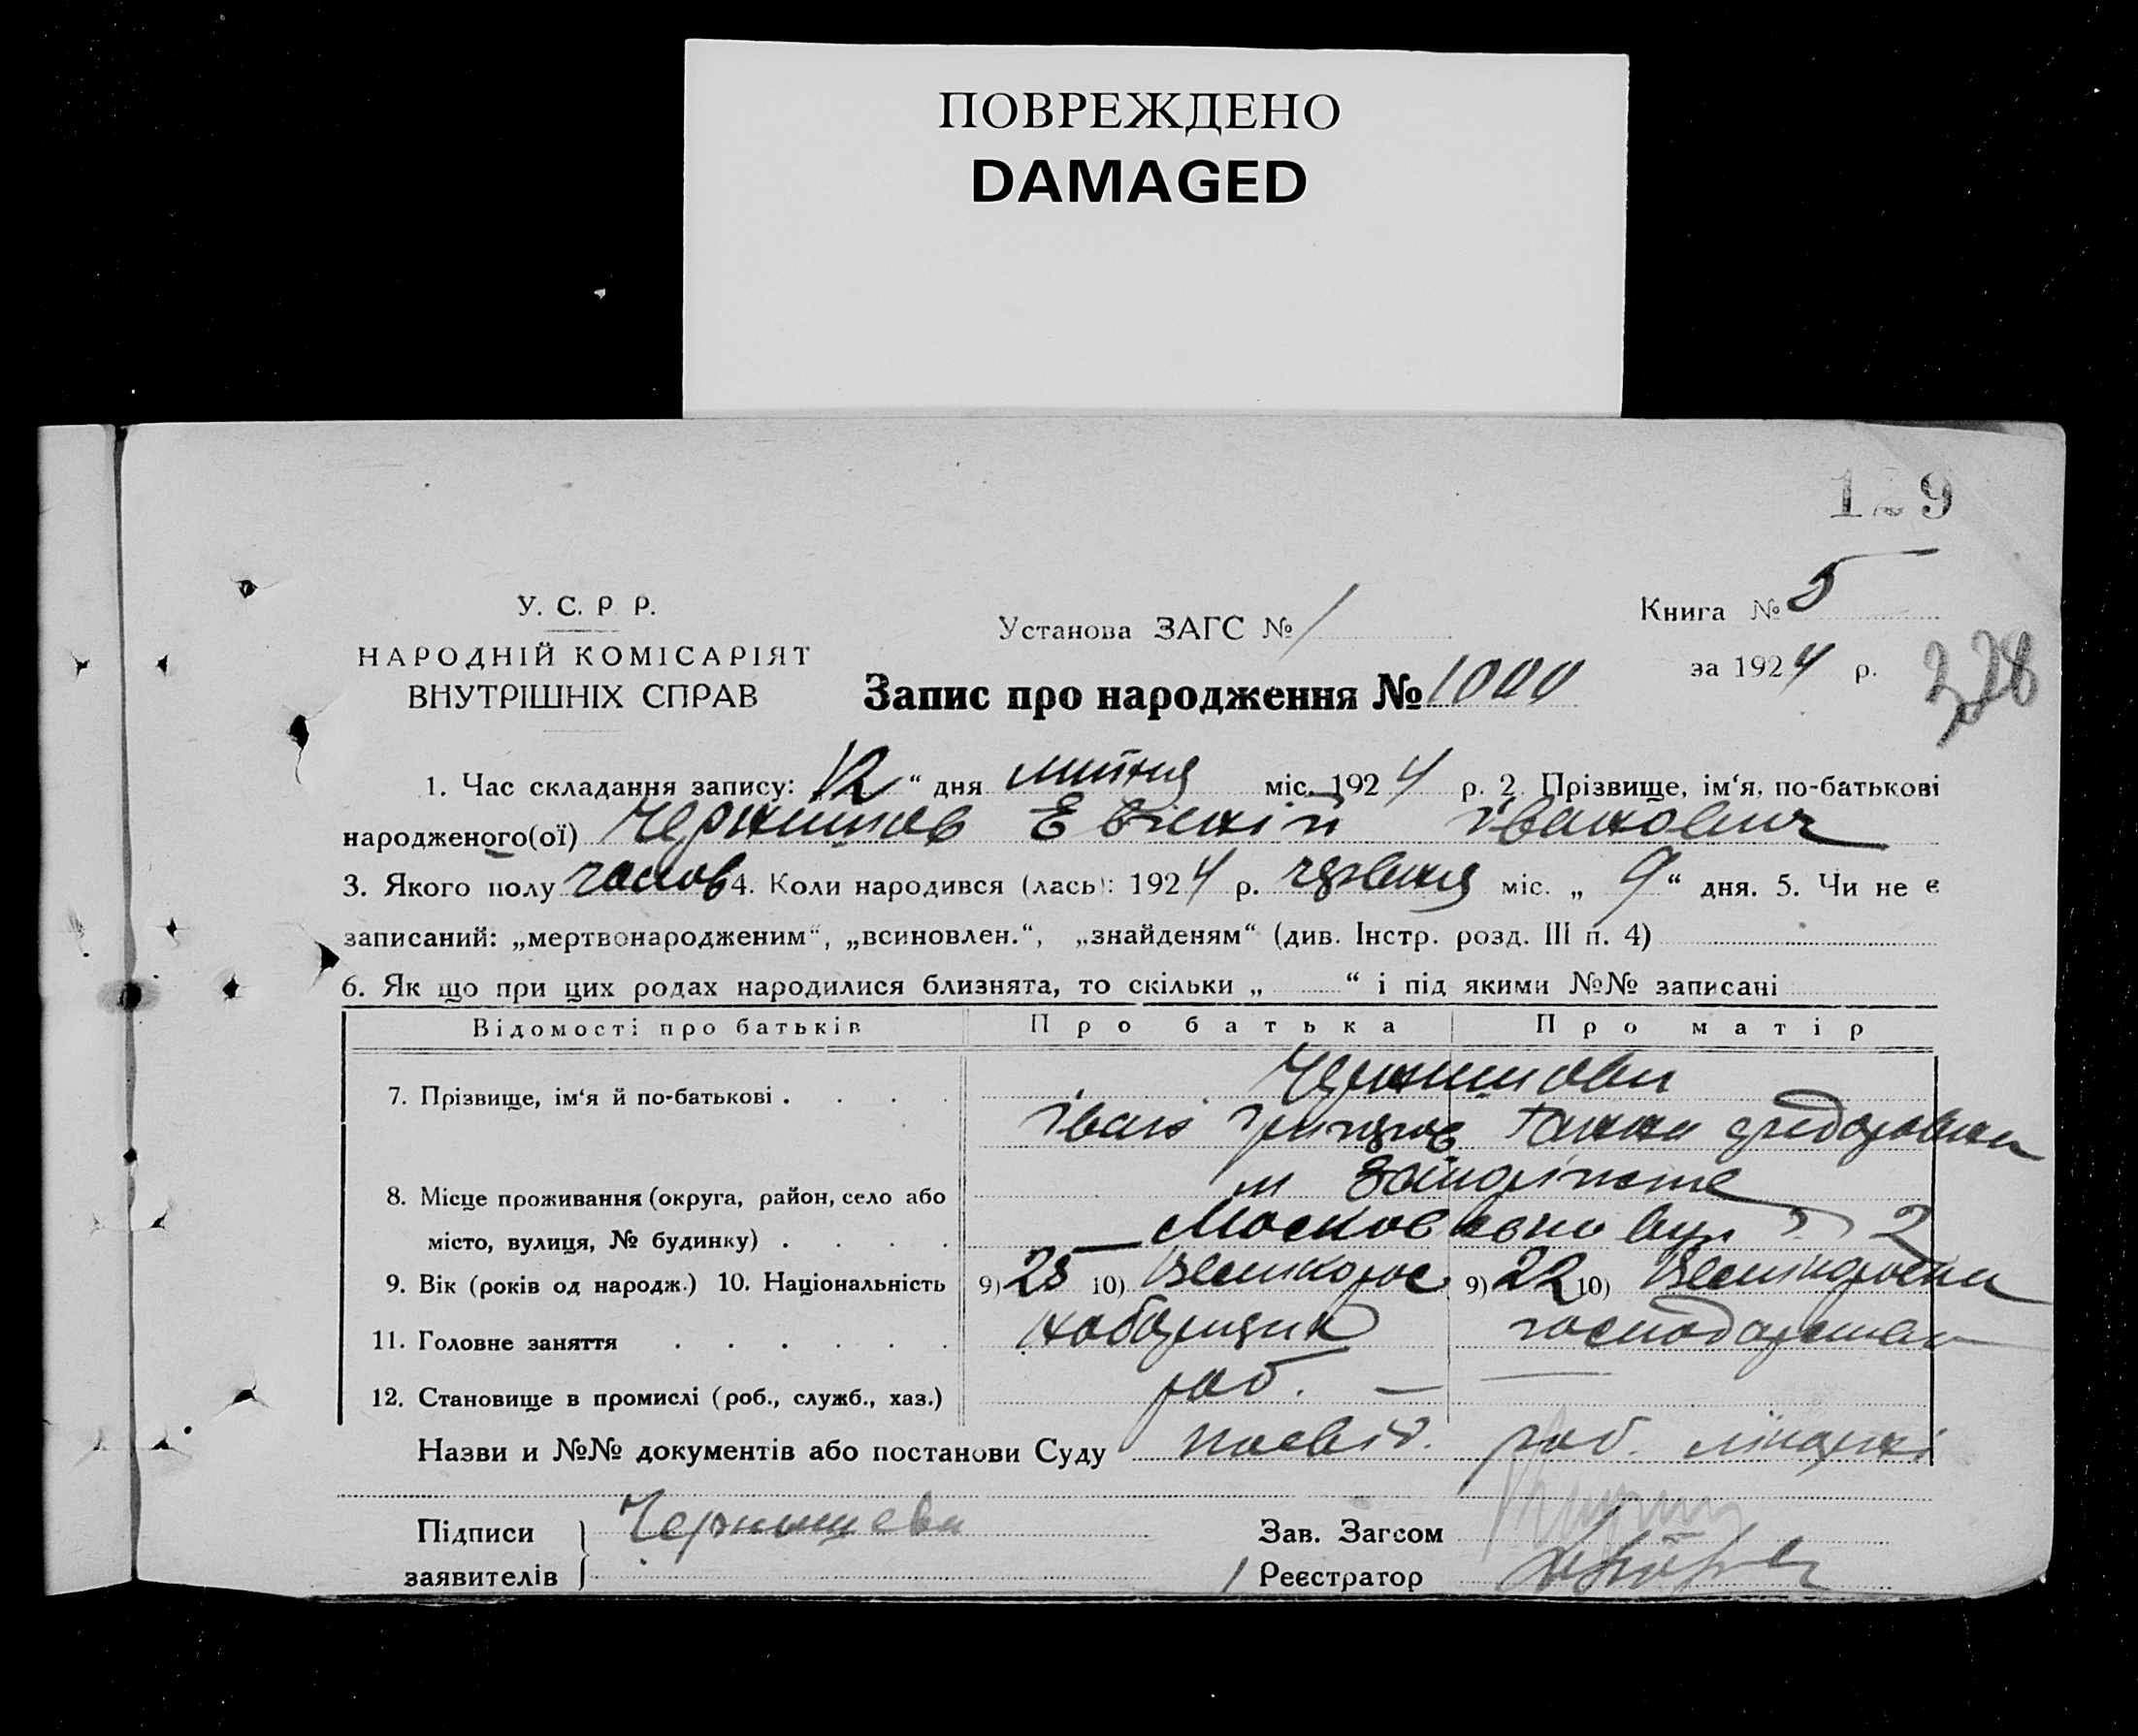 ПОВРЕЖДЕНО
DAMAGED
129
У. С. Р Р.
НАРОДНІЙ КОМІСАРІЯТ
ВНУТРІШНІХ СПРАВ
Установа ЗАГС № 1
Книга № 5
за 1924 р.
328
Запис про народження № 1000
1. Час складання запису: 12 “ дня липня міс. 1924 р. 2. Прізвище, ім‘я, по-батькові
народженого(ої) Чернишов Евгеній Іванович
3. Якого полу чолов 4. Коли народився (лась): 1924 р. червня міс. „ 9 “ дня. 5. Чи не є
записаний: „мертвонародженим“, „всиновлен.“, „знайденям“ (див. Інстр. розд. III п. 4)
6. Як що при цих родах народилися близнята, то скільки „ “ і під якими №№ записані
Відомості про батьків Про батька Про матір
7. Прізвище, ім‘я й по-батькові . . . . Чернишови
Іван Ганна Федоровна
8. Місце проживання (округа, район, село або м
місто, вулиця, № будинку) . . . . Московська вул 2
9. Вік (років од народж.) 10. Національність 9) 25 10) Великорос 9) 22 10) Великороска
11. Головне заняття . . . . . . господарства
12. Становище в промислі (роб., служб., хаз.) роб. —
Назви и №№ документів або постанови Суду посвід. роб.
Підписи Чернышева Зав. Загсом
заявителів Реєстратор